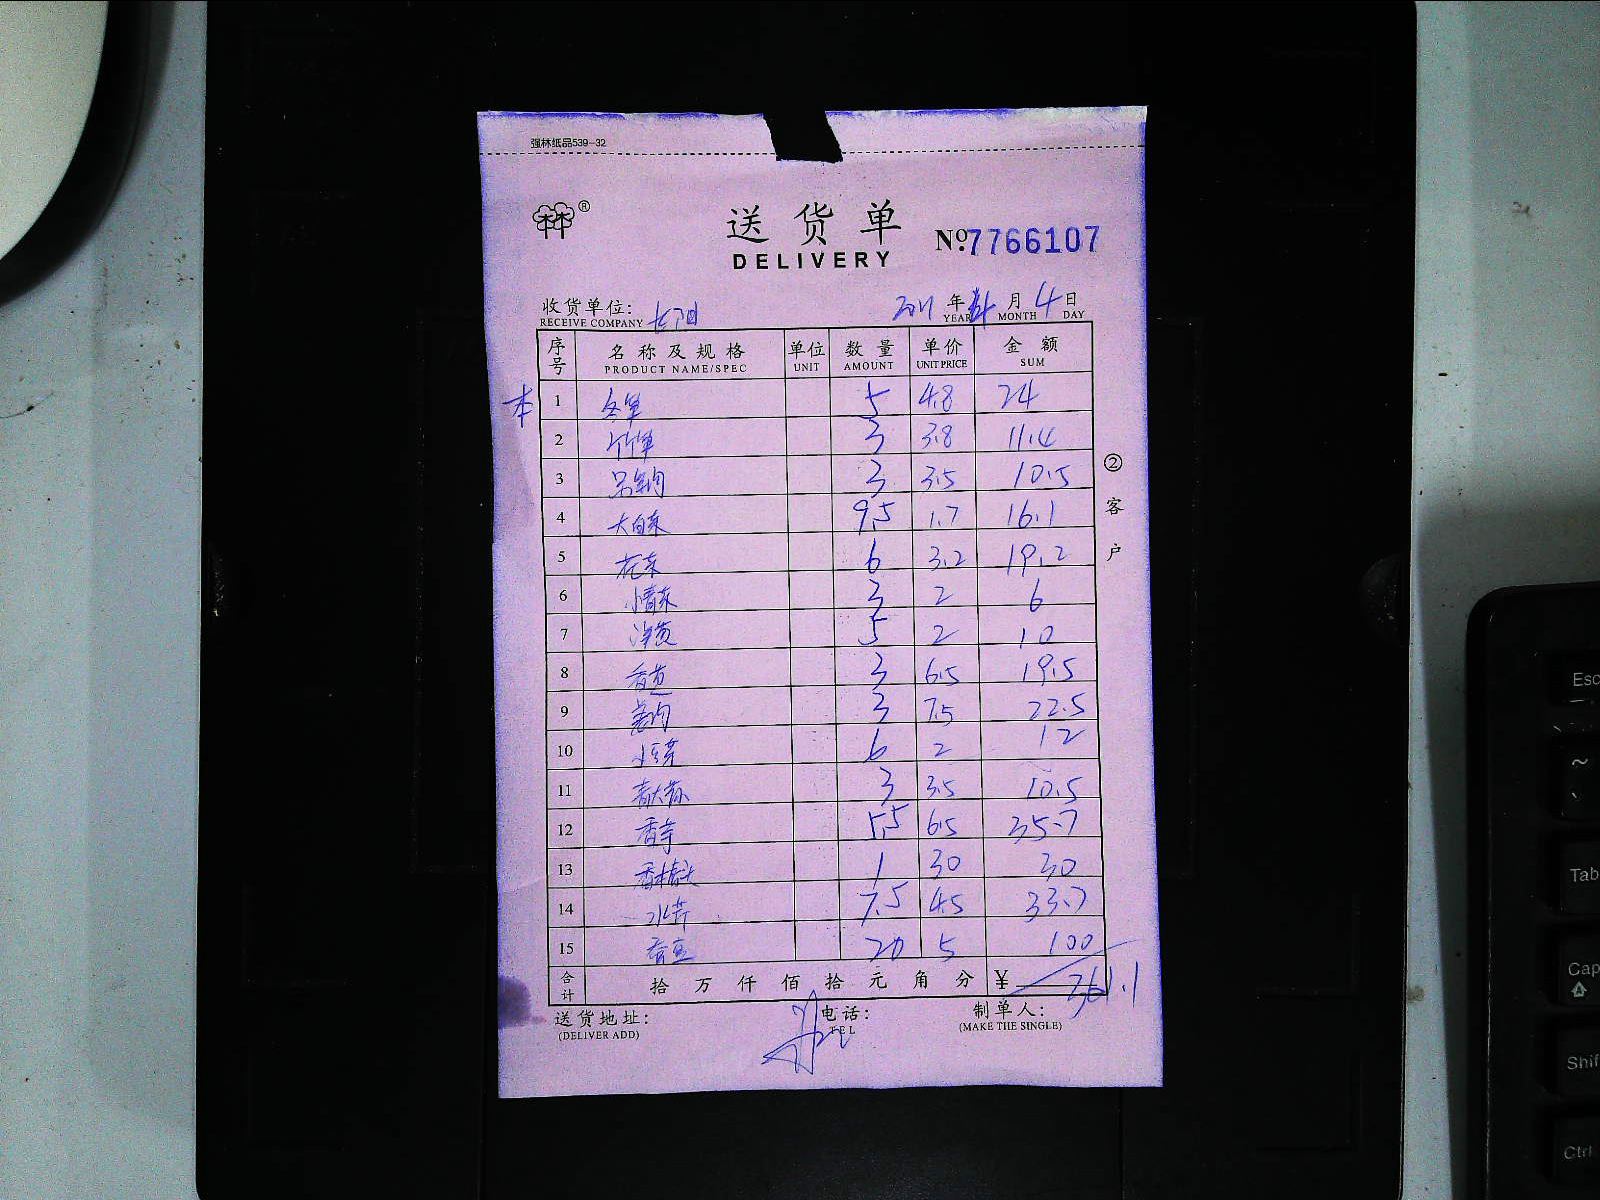 强林纸品539-32
林®
送货单
DELIVERY
№7766107
收货单位: 长阳 年 月 4 日
RECEIVE COMPANY YEAR MONTH DAY
序号 名称及规格 单位 数量 单价 金额
PRODUCT NAME/SPEC UNIT AMOUNT UNIT PRICE SUM
本
1 5 4.8 24
2 3 3.8 11.4
3 3 3.5 10.5
4 大白菜 9.5 1.7 16.1
5 花菜 6 3.2 19.2
6 小青菜 3 2 6
7 5 2 10
8 3 6.5 19.5
9 3 7.5 22.5
10 小豆芽 6 2 12
11 3 3.5 10.5
12 香芋 5.5 6.5 35.7
13 1 30 30
14 水芹 7.5 4.5 33.7
15 20 5 100
合计 拾万仟佰拾元角分 ¥ 361.1
送货地址: 电话: 制单人:
(DELIVER ADD) TEL (MAKE THE SINGLE)
②客户
Esc
~
Tab
Cap
Shif
Ctrl